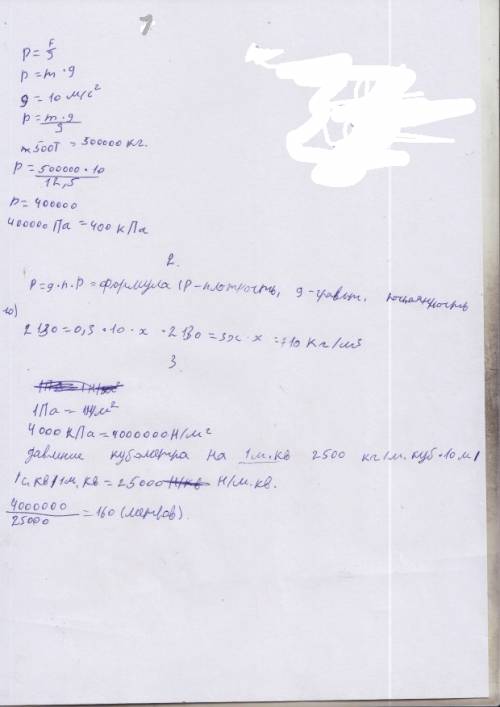 1
P = F/S
P = m · g
g = 10 м/с²
P = m · g / S
m 500т = 500000 кг.
P = 500000 · 10 / 12,5
P = 400000
400000 Па = 400 кПа
2.
P = g · h · P = формула (P - плотность, g -
10)
2130 = 0,3 · 10 · x · 2130 = 3x · x = 710 кг/м3
3
1Па = 1Н/м²
4000 кПа = 4000000 Н/м²
давление кубометра на 1 м. кв 2500 кг/м. куб · 10 м/
/с. кв/1м. кв = 25000 Н/м. кв.
4000000 / 25000 = 160 (метров).